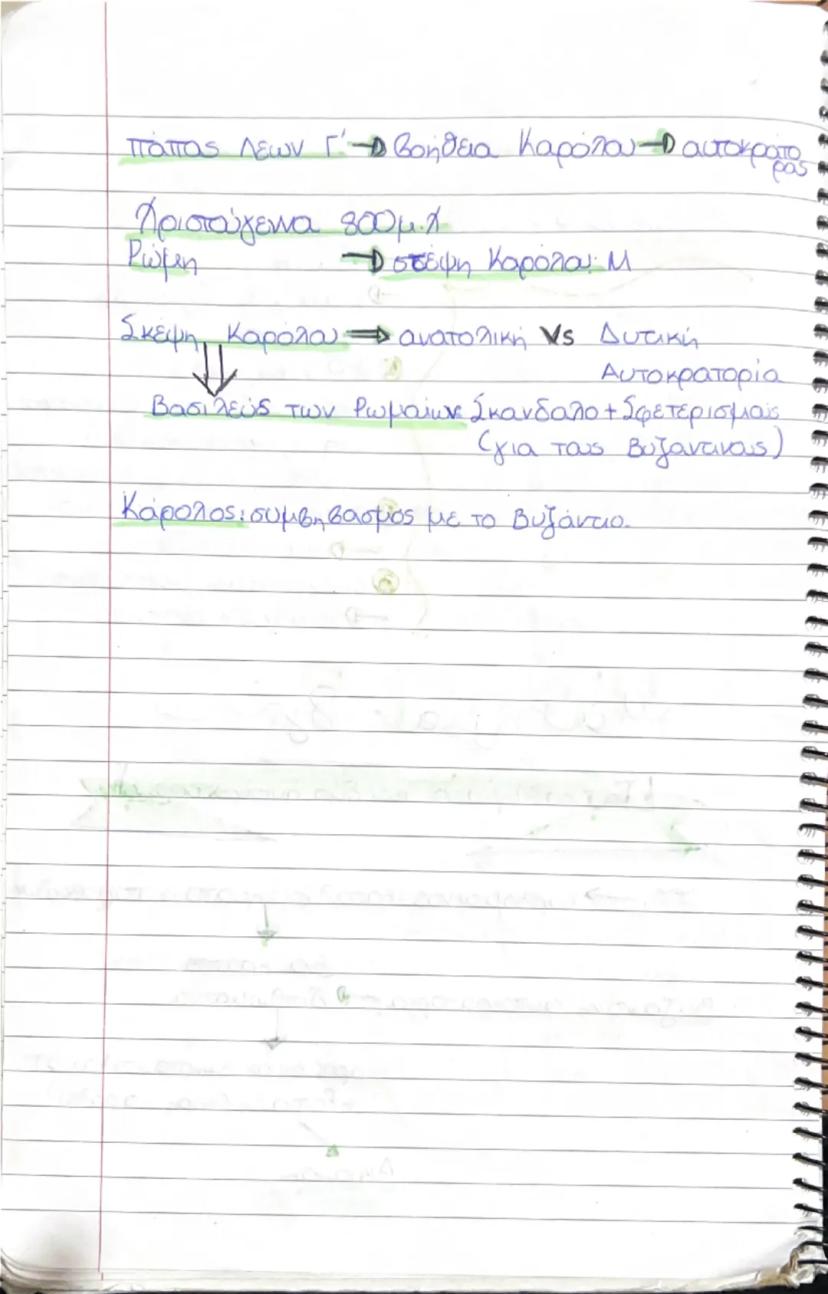 πάπας Λέων Γ' → βοήθεια Καρόλου → αυτοκράτο
ρας
Χριστούγεννα 800μ.Χ
Ρώμη → στέψη Καρόλου Μ
Σκέψη Καρόλου ⇒ ανατολική Vs Δυτική
Αυτοκρατορία
Βασιλεύς των Ρωμαίων Σκανδαλο + Σφετερισμός
(για τους Βυζαντινους)
Κάρολος: συμβηβασμός με το Βυζάντιο.